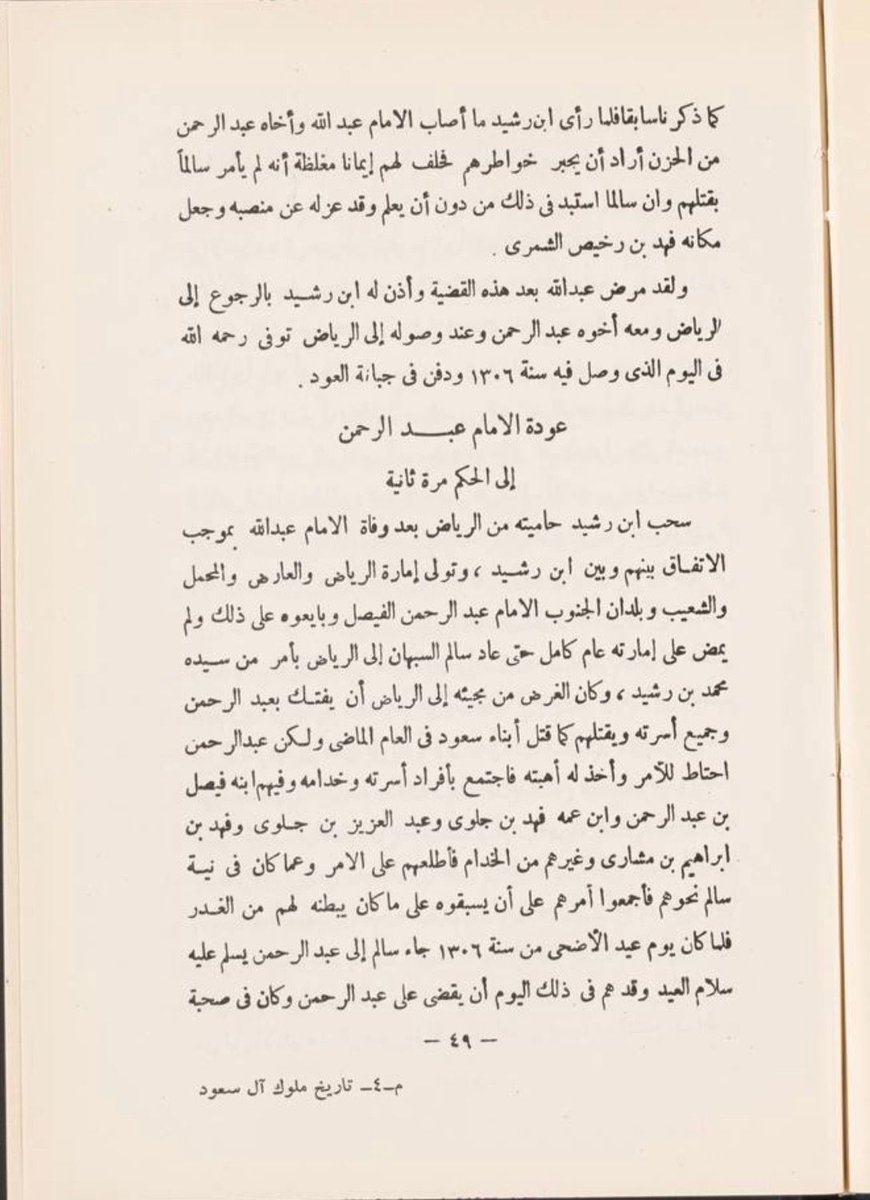 كما ذكرناسابقافلما رأى ابن رشيد ما أصاب الامام عبد الله وأخاه عبد الرحمن
من الحزن أراد أن يجبر خواطرهم فحلف لهم إيمانا مغلظة أنه لم يأمر سالماً
بقتلهم وان سالما استبد فى ذلك من دون أن يعلم وقد عزله عن منصبه وجعل
مكانه فهد بن رخيص الشمرى .
ولقد مرض عبدالله بعد هذه القضية وأذن له ابن رشيد بالرجوع إلى
الرياض ومعه أخوه عبد الرحمن وعند وصوله إلى الرياض توفى رحمه الله
فى اليوم الذى وصل فيه سنة ١٣٠٦ ودفن فى جبانة العود .
عودة الامام عبـــد الرحمن
إلى الحكم مرة ثانية
سحب ابن رشيد حاميته من الرياض بعد وفاة الامام عبدالله بموجب
الاتفـاق بينهم وبين ابن رشـيد ، وتولى إمارة الرياض والعارض والمحمل
والشعيب وبلدان الجنوب الامام عبد الرحمن الفيصل وبايعوه على ذلك ولم
يمض على إمارته عام كامل حتى عاد سالم السبهان إلى الرياض بأمر من سـيده
محمد بن رشيد ، وكان الغرض من مجيئه إلى الرياض أن يفتـك بعبد الرحمن
وجميع أسرته ويقتلهم كما قتل أبناء سعود فى العام الماضى ولـكن عبدالرحمن
احتاط للأمر وأخذ له أهبته فاجتمع بأفراد أسرته وخدامه وفيهم ابنه فيصل
بن عبد الرحمن وابن عمه فهد بن جلوى وعبد العزيز بن جـلوى وفهد بن
ابراهيم بن مشارى وغيرهم من الخدام فأطلعهم على الامر وعما كان فى نيـة
سالم نحوهم فأجمعوا أمرهم على أن يسبقوه على ما كان يبطنه لهم من الغـدر
فلما كان يوم عيد الأضحى من سنة ١٣٠٦ جاء سالم إلى عبد الرحمن يسلم عليه
سلام العيد وقد هم فى ذلك اليوم أن يقضى على عبد الرحمن وكان فى صحبة
— ٤٩ —
م-٤- تاريخ ملوك آل سعود